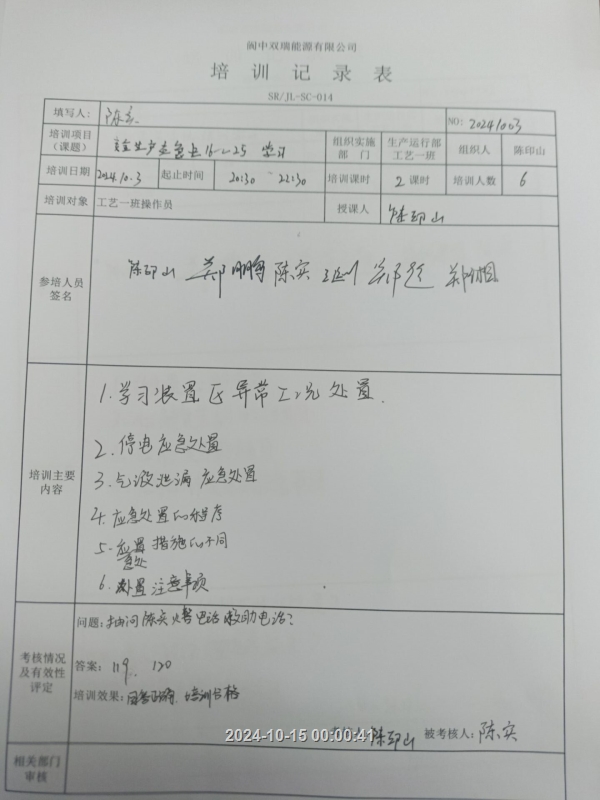 阆中双瑞能源有限公司
培训记录表
SR/JL-SC-014
填写人: 陈实 NO: 20241003
培训项目（课题） 学习 组织实施部门 生产运行部工艺一班 组织人 陈印山
培训日期 2024.10.3 起止时间 20:30 ~ 22:30 培训课时 2 课时 培训人数 6
培训对象 工艺一班操作员 授课人 陈印山
参培人员签名 陈印山 郑鹏 陈实
培训主要内容
1.学习装置区异常工况处置.
2.停电应急处置
3.气液泄漏应急处置
4.应急处置的程序
5.应急处置措施的不同
6.处置注意事项
考核情况及有效性评定
问题: 抽问陈实火警电话救助电话?
答案: 119. 120
培训效果: 回答正确. 培训合格
陈印山 被考核人: 陈实
相关部门审核
2024-10-15 00:00:41